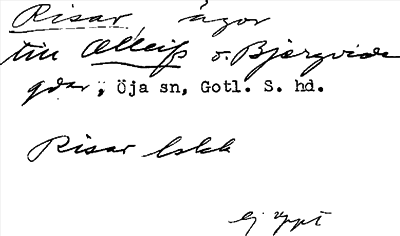 Risar, ägor
till Alleifs o. Bjergvide
gdar, Öja sn, Gotl. S. hd.
Risar lskk
ej uppt